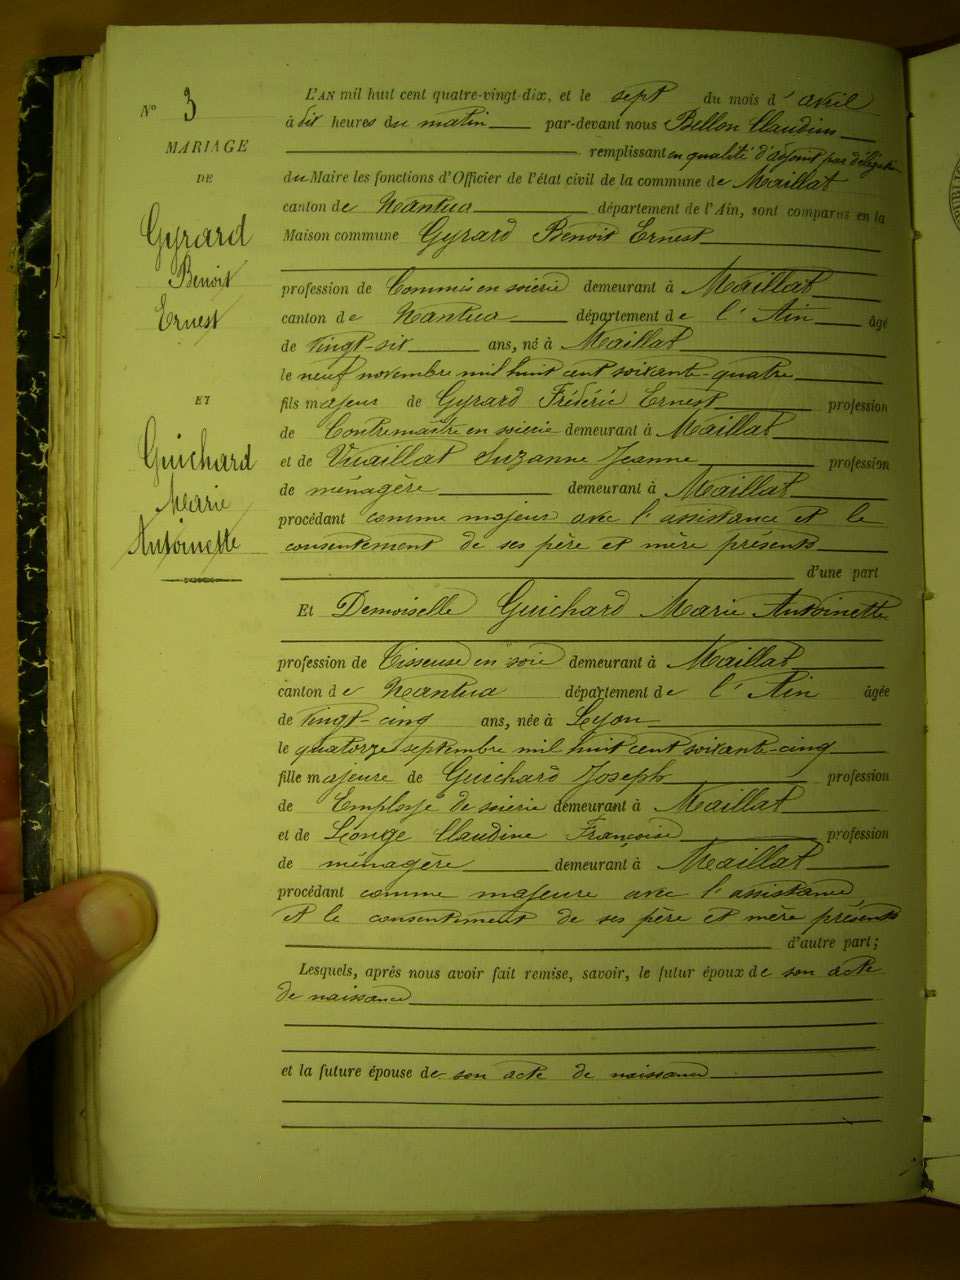 N° 3
MARIAGE
DE
Gyrard
Benoit
Ernest
ET
Guichard
Marie
Antoinette
L'AN mil huit cent quatre-vingt-dix, et le sept du mois d'avril
à dix heures du matin par-devant nous Bellon Claudius
remplissant en qualité d'adjoint par délégation
du Maire les fonctions d'Officier de l'état civil de la commune de Maillat
canton de Nantua département de l'Ain, sont comparus en la
Maison commune Gyrard Benoit Ernest
profession de Commis en soierie demeurant à Maillat
canton de Nantua département de l'Ain âgé
de vingt-six ans, né à Maillat
le neuf novembre mil huit cent soixante-quatre
fils majeur de Gyrard Frédéric Ernest profession
de Contremaître en soierie demeurant à Maillat
et de Vuaillat Suzanne Jeanne profession
de ménagère demeurant à Maillat
procédant comme majeur avec l'assistance et le
consentement de ses père et mère présents
d'une part
Et Demoiselle Guichard Marie Antoinette
profession de Tisseuse en soie demeurant à Maillat
canton de Nantua département de l'Ain âgée
de vingt-cinq ans, née à Lyon
le quatorze septembre mil huit cent soixante-cinq
fille majeure de Guichard Joseph profession
de Employé de soierie demeurant à Maillat
et de Claudine Françoise profession
de ménagère demeurant à Maillat
procédant comme majeure avec l'assistance
et le consentement de ses père et mère présents
d'autre part;
Lesquels, après nous avoir fait remise, savoir, le futur époux de son acte
de naissance
et la future épouse de son acte de naissance